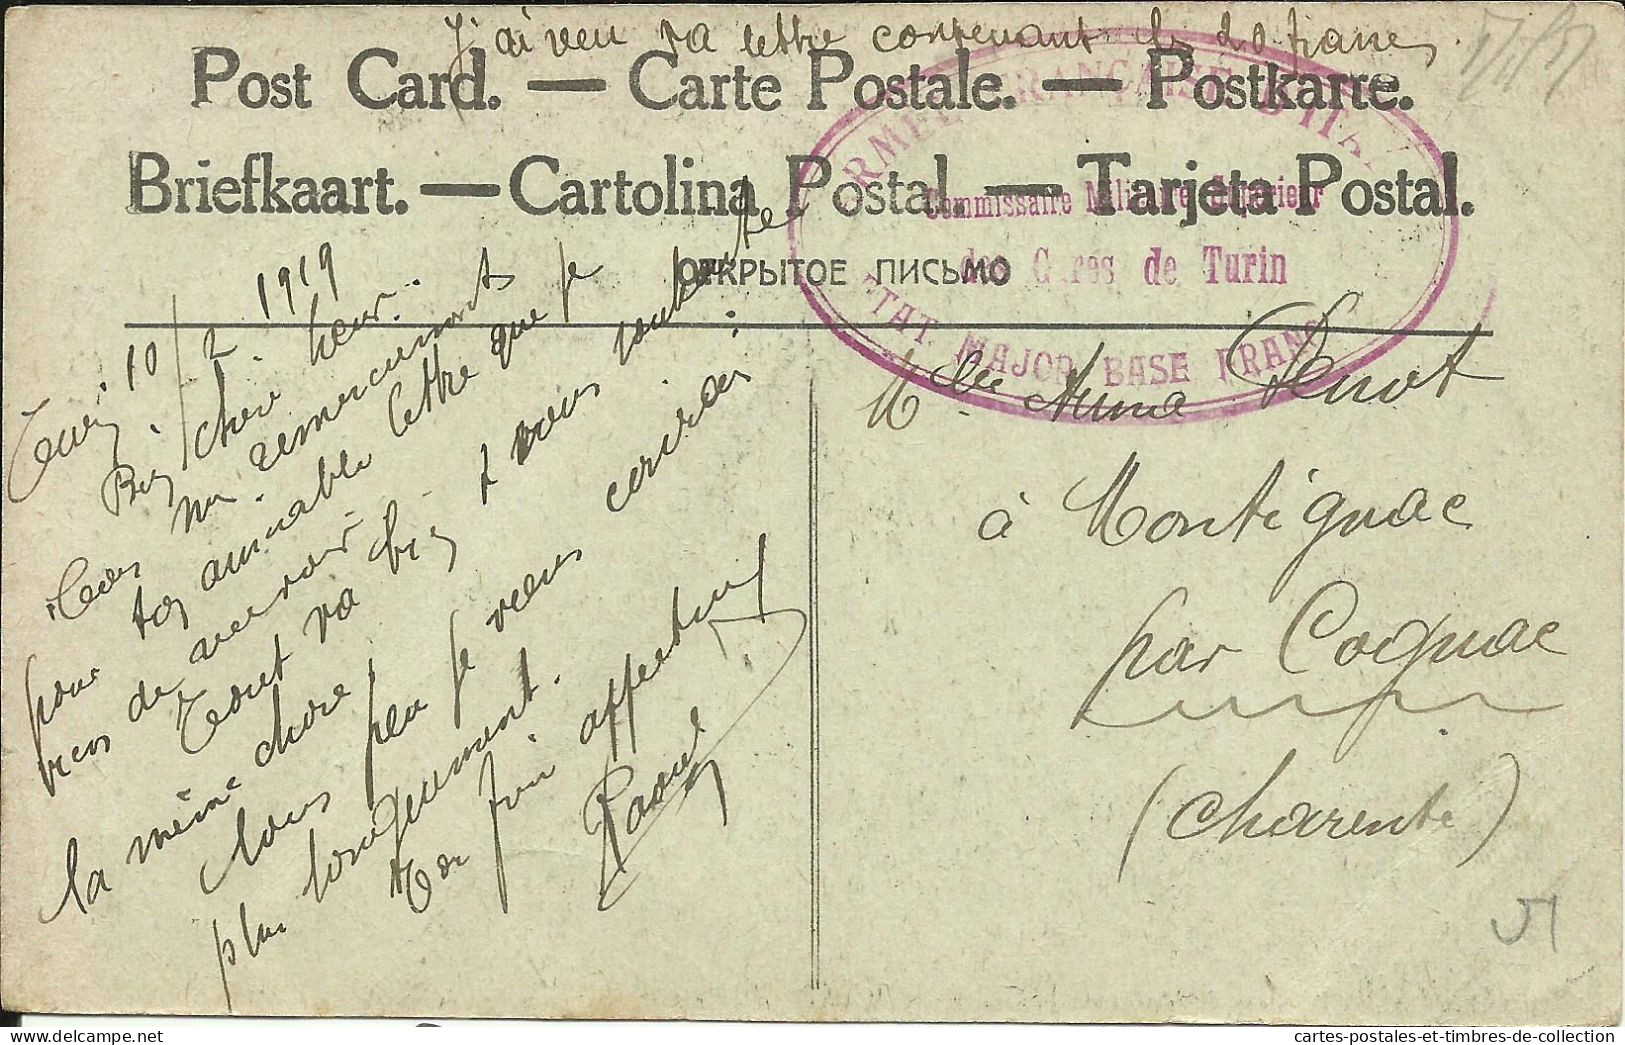 J'ai reçu ta lettre contenant les 20 francs.
Post Card. — Carte Postale. — Postkarte.
Briefkaart. — Cartolina Postal. — Tarjeta Postal.
ОТКРЫТОЕ ПИСЬМО
ARMÉE FRANÇAISE D'ITALIE
Commissaire Militaire Supérieur
des Gares de Turin
ETAT MAJOR BASE FRANC
Turin 10/2 1919
Bien chère soeur.
Tous mes remerciements
pour ton aimable lettre que je
viens de recevoir.
Tout va bien et vous souhaite
la même chose.
Sous peu je vous écrirai
plus longuement.
Ton affectueux
Raoul
Mlle Anna Penot
à Montignac
par Cognac
(Charente)
cartes-postales-et-timbres-de-collection